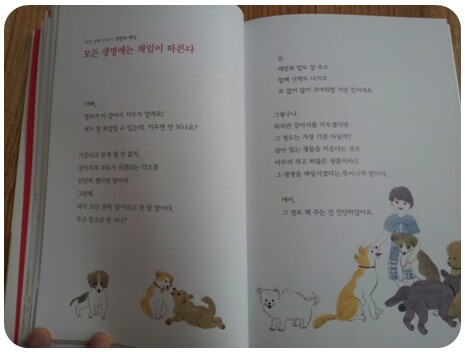 모든 생명에는 책임이 따른다
아빠,
엄마가 이 강아지 키우지 말래요!
제가 잘 보살필 수 있는데, 키우면 안 되나요?
키운다고 문제 될 건 없지,
강아지의 부모가 되겠다는 각오를
단단히 했다면 말이야.
그런데
네가 조금 전에 '잘'이라고 한 말 말이다,
무슨 뜻으로 한 거니?
음,
때맞춰 밥도 잘 주고
함께 산책도 나가고
또 많이 많이 귀여워할 거란 뜻이에요.
그렇구나.
하지만 강아지를 키우겠다면
그 정도는 가장 기본 아닐까?
살아 있는 생물을 키운다는 것은
아무리 작고 하찮은 생물이라도
그 생명을 책임지겠다는 뜻이니까 말이야.
에이,
그 정도 해 주는 건 간단하잖아요.